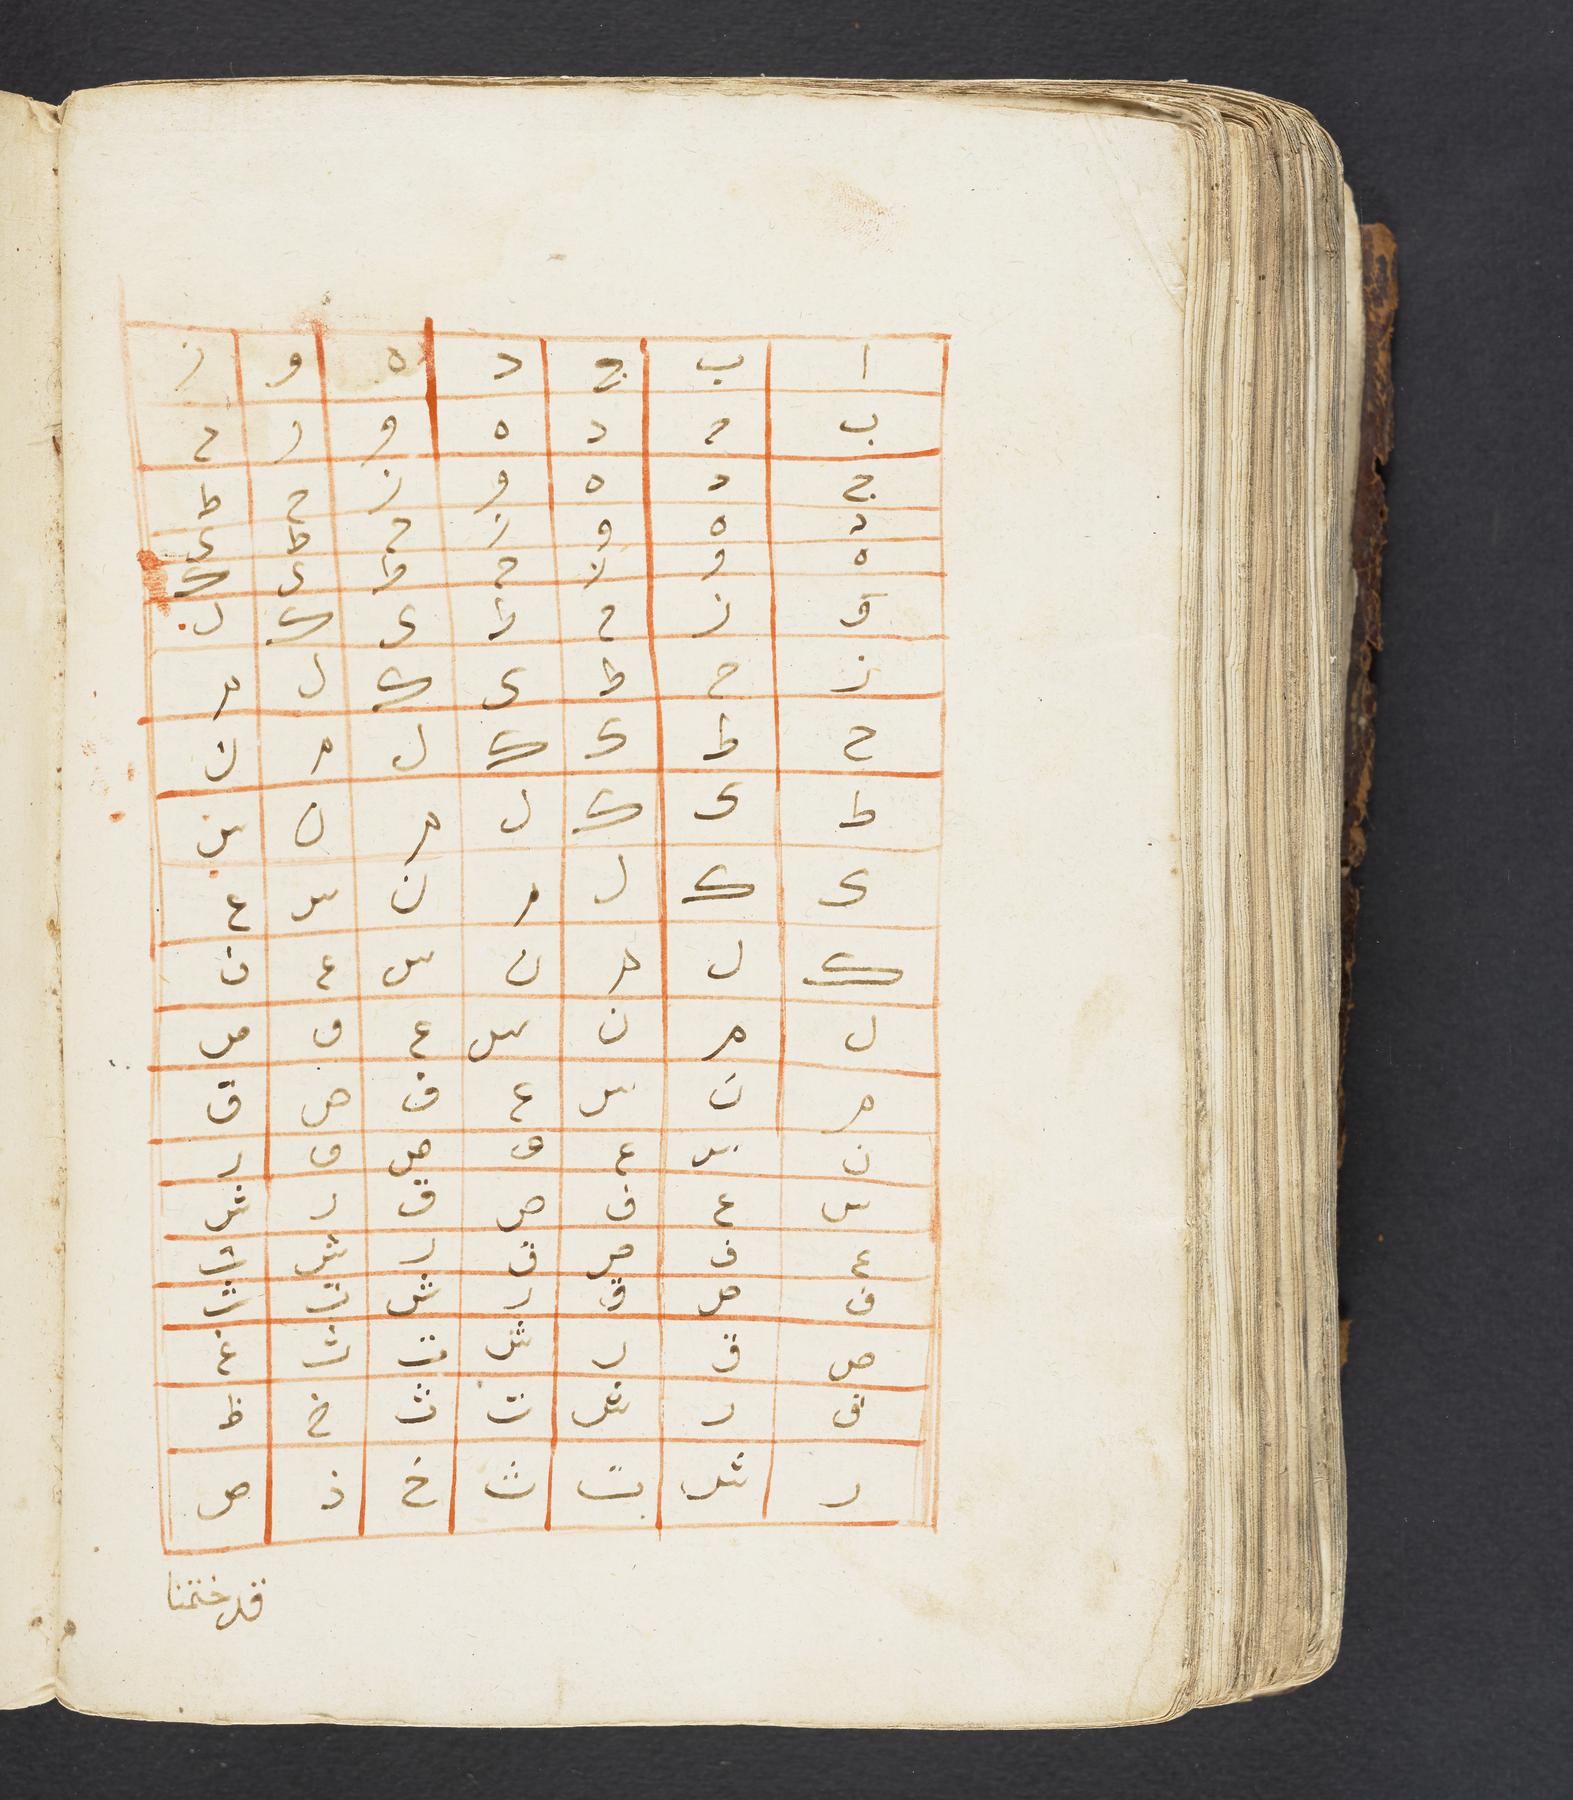 ا ب ج د ه و ز
ب ح د ه و ز ح
ج د ه و ز ح ط
د ه و ز ح ط ى
ه و ز ح ط ى ك
و ز ح ط ى ك ل
ز ح ط ى ك ل م
ح ط ى ك ل م ن
ط ى ك ل م ن س
ى ك ل م ن س ع
ك ل م ن س ع ف
ل م ن س ع ف ص
م ن س ع ف ص ق
ن س ع ف ص ق ر
س ع ف ص ق ر ش
ع ف ص ق ر ش ت
ف ص ق ر ش ت ث
ص ق ر ش ت ث غ
ق ر ش ت ث خ ظ
ر ش ت ث خ ذ ص
قد ختمنا